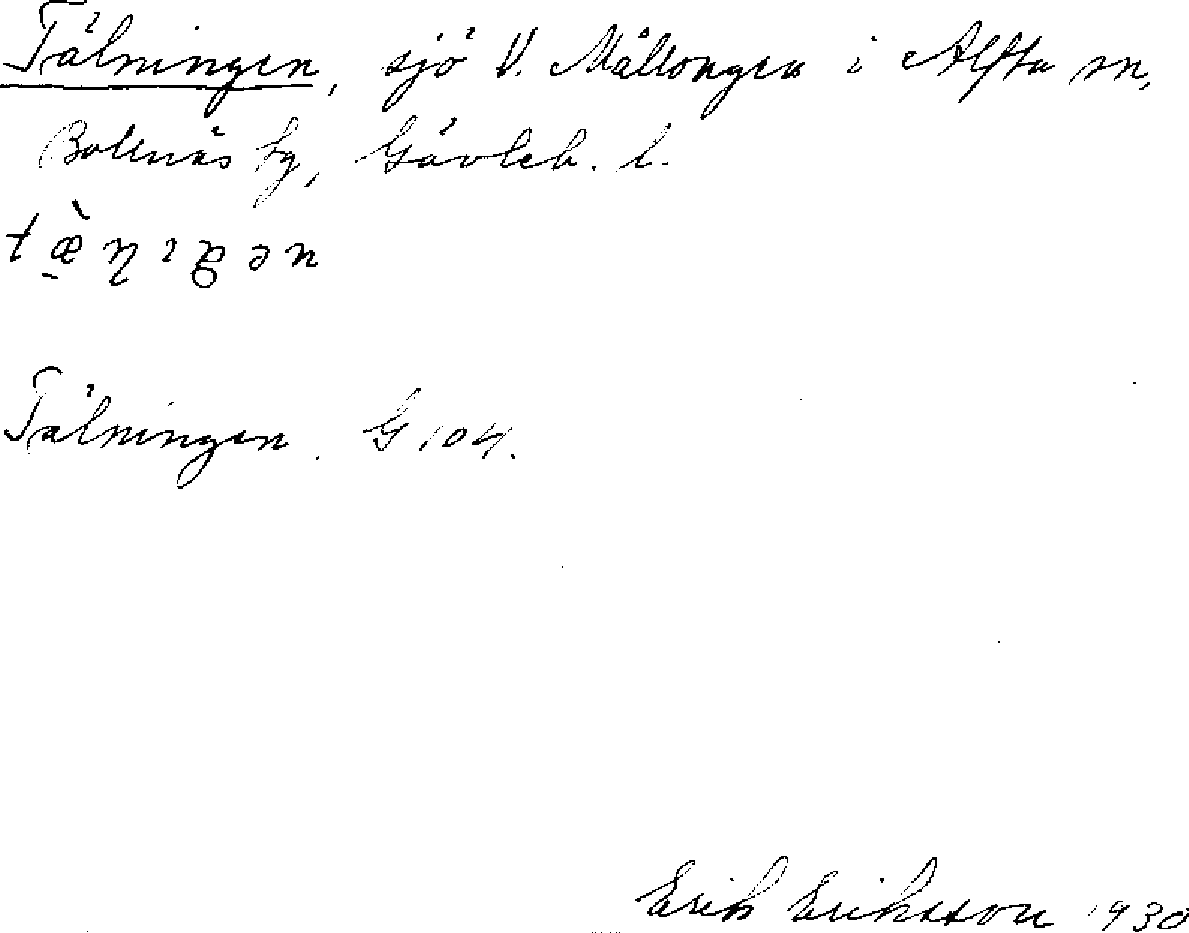 Tälningen, sjö V. Mållongen i Alfta sn,
Bollnäs fg, Gävleb. l.
Tälningen. G 104.
Erik Eriksson 1930